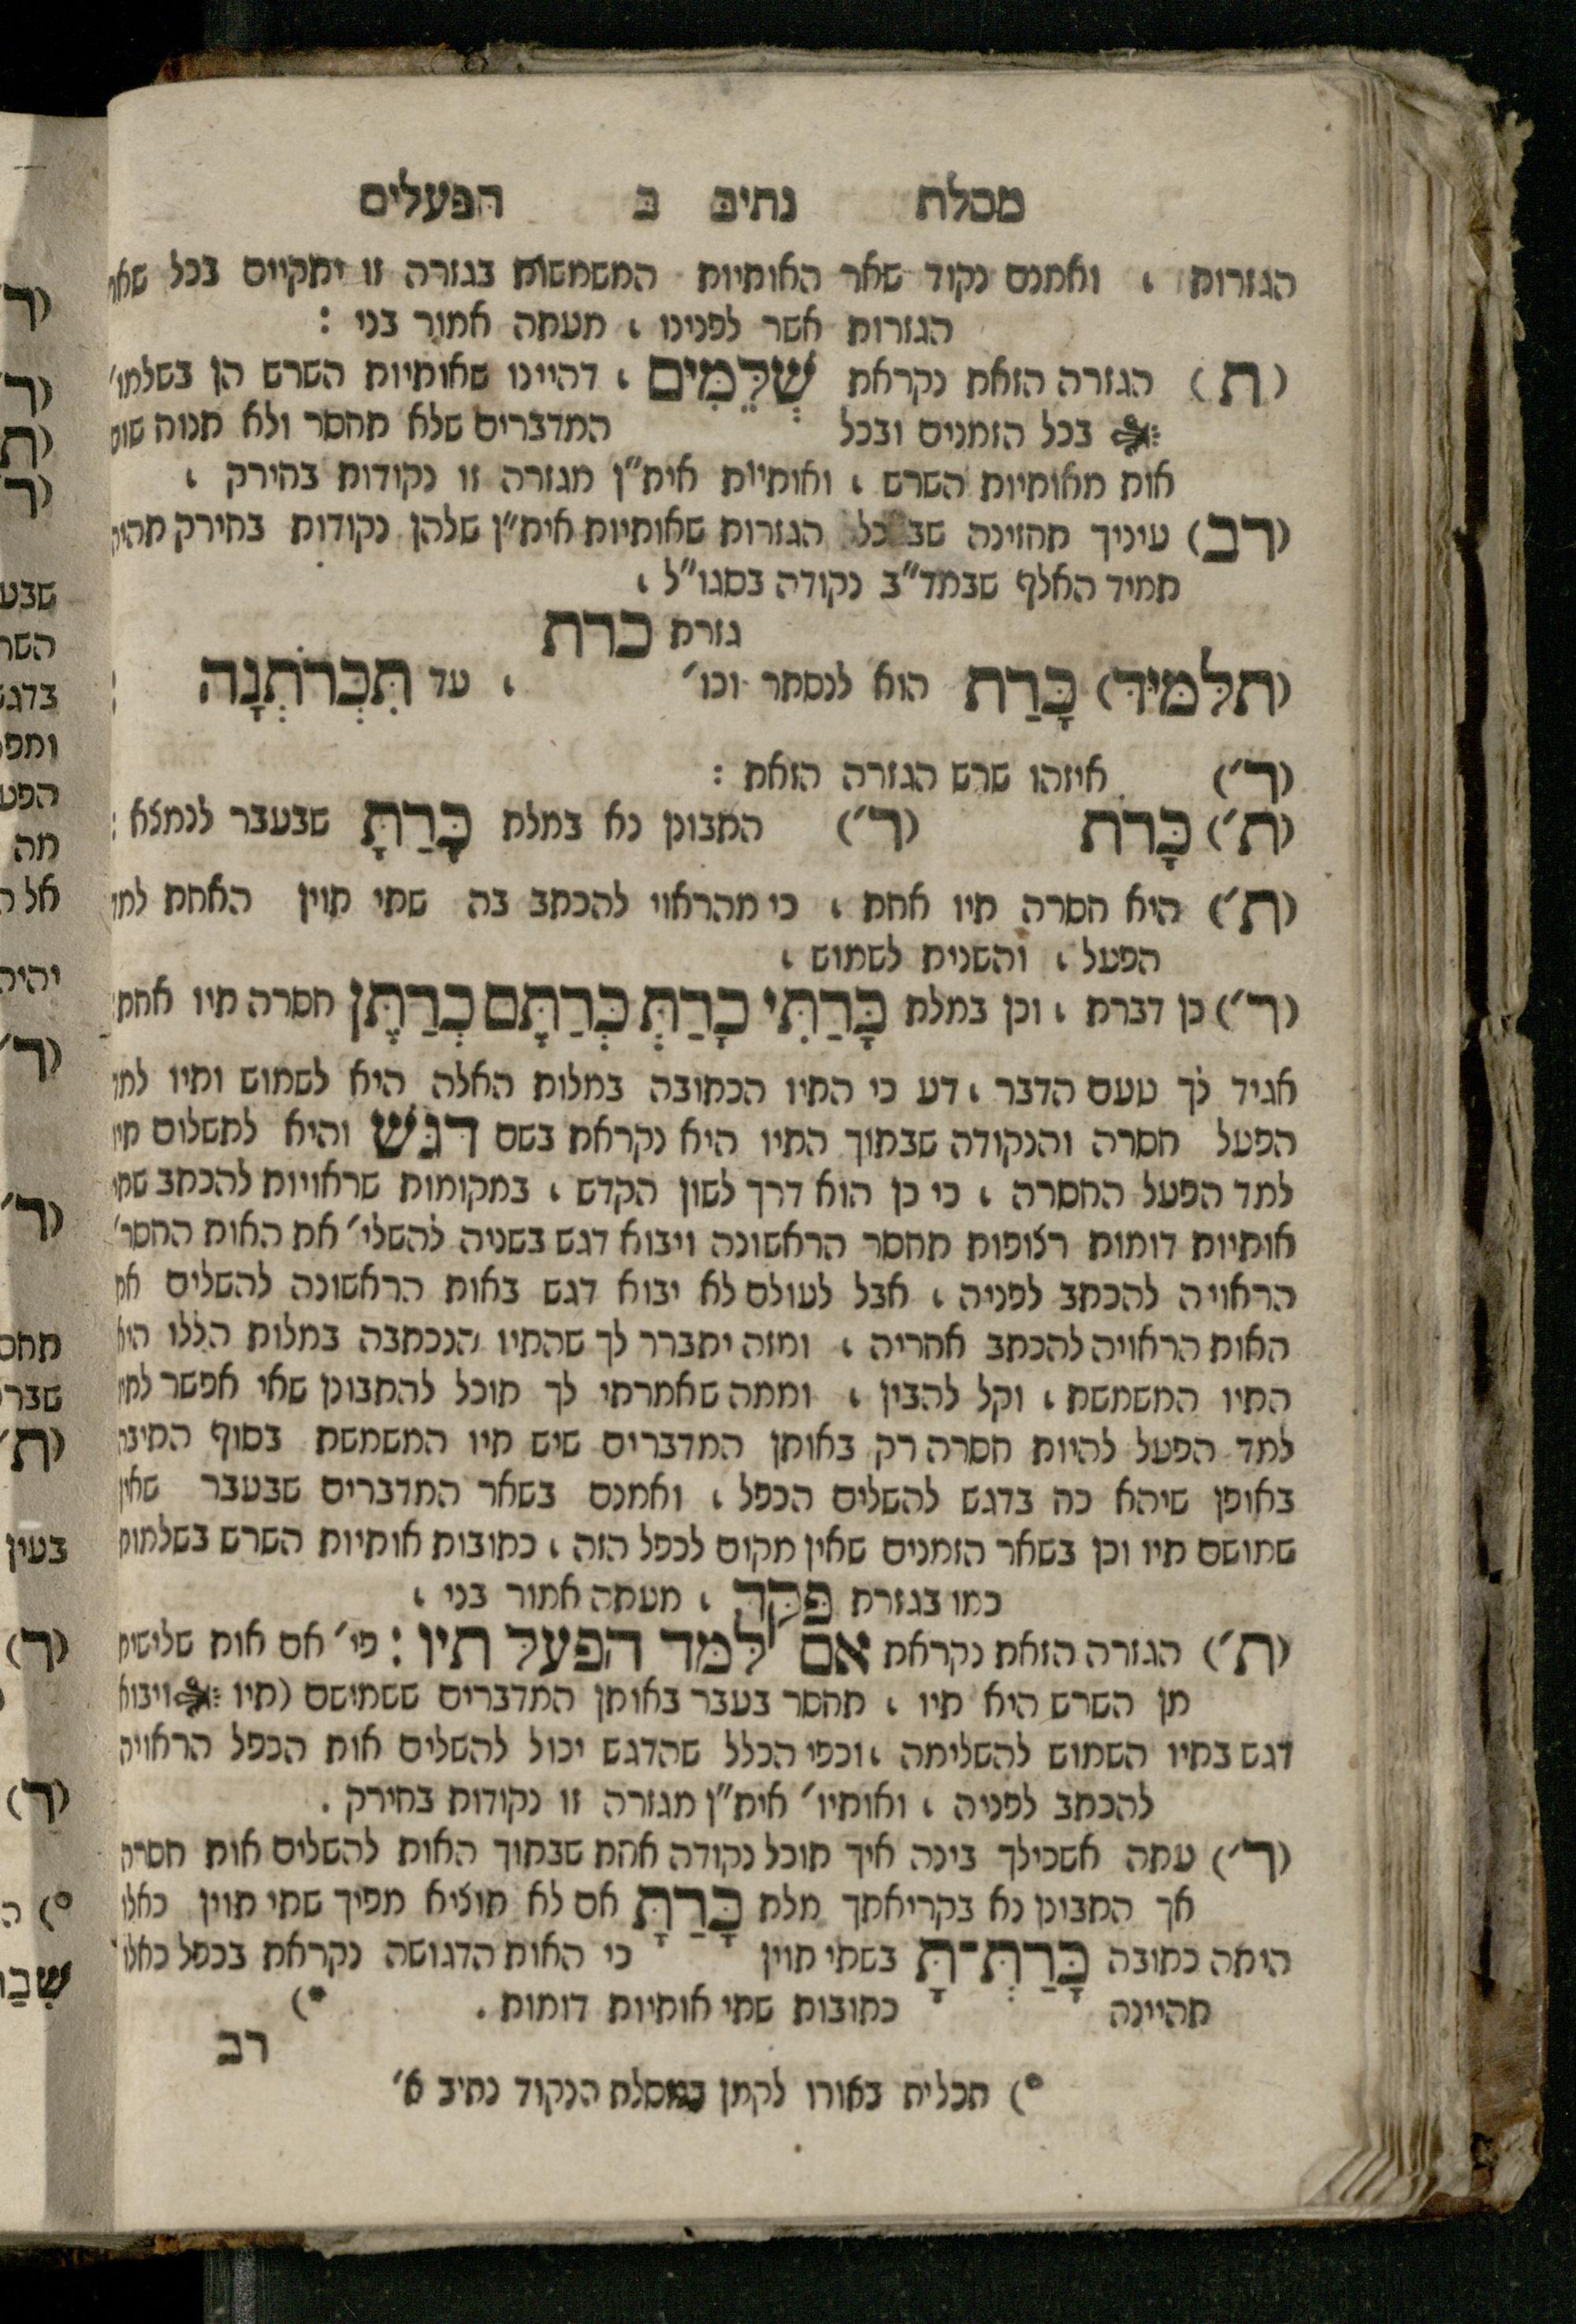 מסלת נתיב ב הפעלים
הגזרות , ואמנם נקוד שאר האותיות המשמשות בגזרה זו יתקיים בכל שאר
הגזרות אשר לפנינו , מעתה אמור בני :
(ת) הגזרה הזאת נקראת שְׁלֵמִים , דהיינו שאותיות השרש הן בשלמו׳
בכל הזמנים ובכל המדברים שלא תחסר ולא תנוח שום
אות מאותיות השרש , ואותיות אית״ן מגזרה זו נקודות בחירק ,
(רב) עיניך תחזינה שבכל הגזרות שאותיות אית״ן שלהן נקודות בחירק תהיה
תמיד האלף שבמד״ב נקודה בסגו״ל ,
גזרת כרת
(תלמיד) כָּרַת הוא לנסתר וכו׳ , עד תִּכְּרֹתְנָה :
(ר׳) איזהו שרש הגזרה הזאת :
(ת׳) כָּרֹת (ר׳) התבונן נא במלת כָּרַתָּ שבעבר לנמצא :
(ת׳) היא חסרה תיו אחת , כי מהראוי להכתב בה שתי תוין האחת למד
הפעל , והשנית לשמוש ,
(ר׳) כן דברת , וכן במלת כָּרַתִּי כָרַתְּ כְּרַתֶּם כְּרַתֶּן חסרה תיו אחת
אגיד לך טעם הדבר , דע כי התיו הכתובה במלות האלה היא לשמוש ותיו למד
הפעל חסרה והנקודה שבתוך התיו היא נקראת בשם דגש והיא לתשלום תיו
למד הפעל החסרה , כי כן הוא דרך לשון הקדש , במקומות שראויות להכתב שתי
אותיות דומות רצופות תחסר הראשונה ויבוא דגש בשניה להשלי׳ את האות החסר׳
הראויה להכתב לפניה , אבל לעולם לא יבוא דגש באות הראשונה להשלים את
האות הראויה להכתב אחריה , ומזה יתברר לך שהתיו הנכתבה במלות הללו היא
התיו המשמשת , וקל להבין , וממה שאמרתי לך תוכל להתבונן שאי אפשר לתיו
למד הפעל להיות חסרה רק באותן המדברים שיש תיו המשמשת בסוף התיבה
באופן שיהא כח בדגש להשלים הכפל , ואמנם בשאר המדברים שבעבר שאין
שמושם תיו וכן בשאר הזמנים שאין מקום לכפל הזה , כתובות אותיות השרש בשלמות
כמו בגזרת פקד , מעתה אמור בני ,
(ת׳) הגזרה הזאת נקראת אם למד הפעל תיו : פי׳ אם אות שלישית
מן השרש היא תיו , תחסר בעבר באותן המדברים ששמושם (תיו ויבוא
דגש בתיו השמוש להשלימה , וכפי הכלל שהדגש יכול להשלים אות הכפל הראויה
להכתב לפניה , ואותיו׳ אית״ן מגזרה זו נקודות בחירק .
(ר׳) עתה אשכילך בינה איך תוכל נקודה אחת שבתוך האות להשלים אות חסרה
אך התבונן נא בקריאתך מלת כָּרַתָּ אם לא תוציא מפיך שתי תוין כאלו
היתה כתובה כָּרַתְּ־תָּ בשתי תוין כי האות הדגושה נקראת בכפל כאלו
תהיינה כתובות שתי אותיות דומות . *)
רב
*) תכלית באורו לקמן במסלת הנקוד נתיב א׳